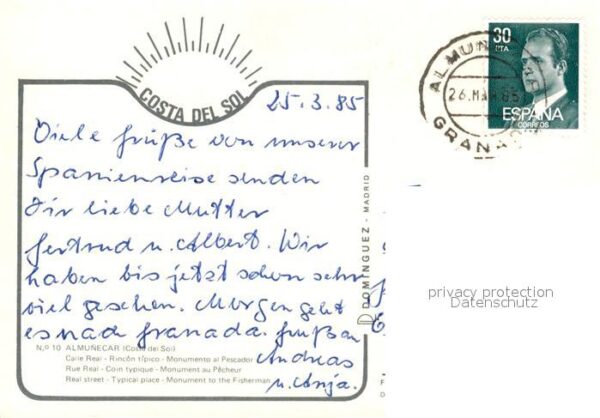 COSTA DEL SOL
25.3.85
Viele Grüße von unserer
Spanienreise senden
Dir liebe Mutter
Gertrud u. Albert. Wir
haben bis jetzt schon sehr
viel gesehen. Morgen geht
es nach Granada. Gruß an
Andreas
u. Anja.
Nº 10 ALMUÑECAR (Costa del Sol)
Calle Real - Rincón típico - Monumento al Pescador
Rue Real - Coin typique - Monument au Pêcheur
Real street - Typical place - Monument to the Fisherman
DOMINGUEZ - MADRID
30
PTA
ESPAÑA
CORREOS
26.MAR.85
privacy protection
Datenschutz